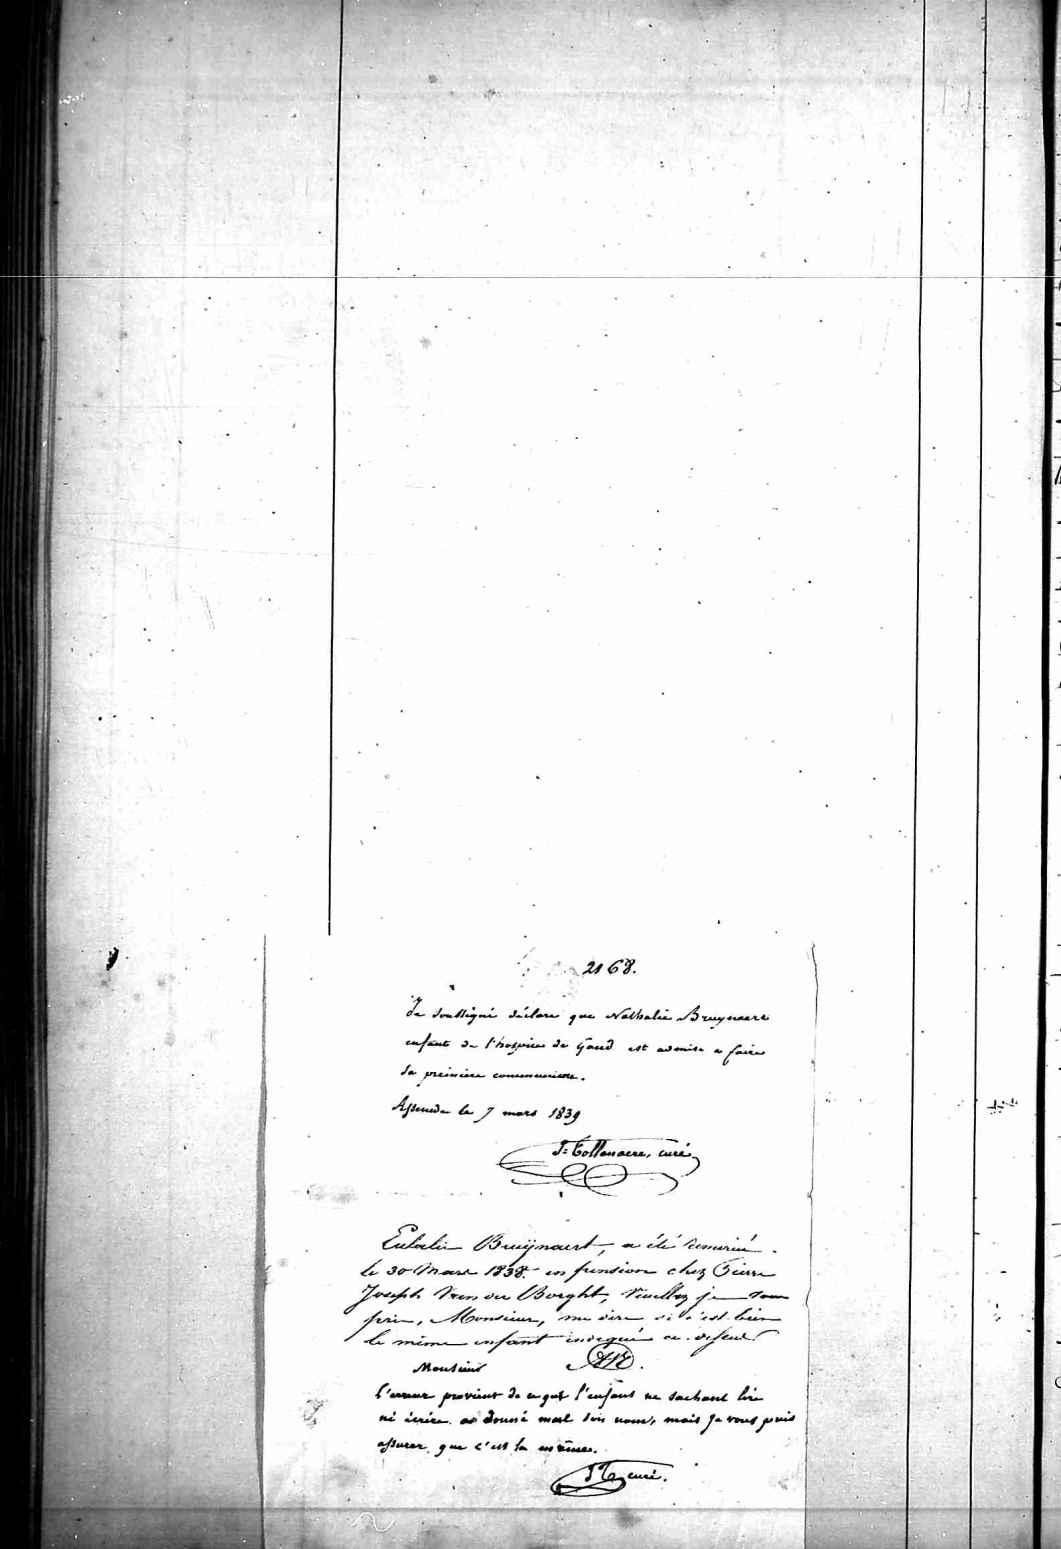 2168.
Je soussigné déclare que Nathalie Bruynaere
enfant de l'hospice de Gand est admise a faire
sa première communion.
Assenede le 7 mars 1839
J: Tollenaere, curé
Eulalie Bruÿnaert, a été
le 30 Mars 1838. en pension chez Pierre
Joseph Van der Borght, Veuillez je vous
prie, Monsieur, me dire si c'est bien
le même enfant indiqué ci-dessus
Monsieur
l'erreur provient de ce que l'enfant ne sachant lire
ni écrire a donné mal son nom, mais je vous puis
assurer que c'est la même.
JT curé.